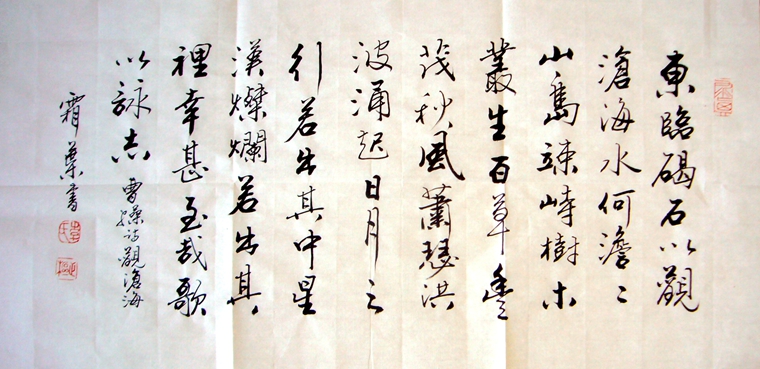 東臨碣石以觀
滄海水何澹〻
山島竦峙樹木
叢生百草豐
茂秋風蕭瑟洪
波涌起日月之
行若出其中星
漢燦爛若出其
裡幸甚至哉歌
以詠志 曹操詩觀滄海
霜葉書